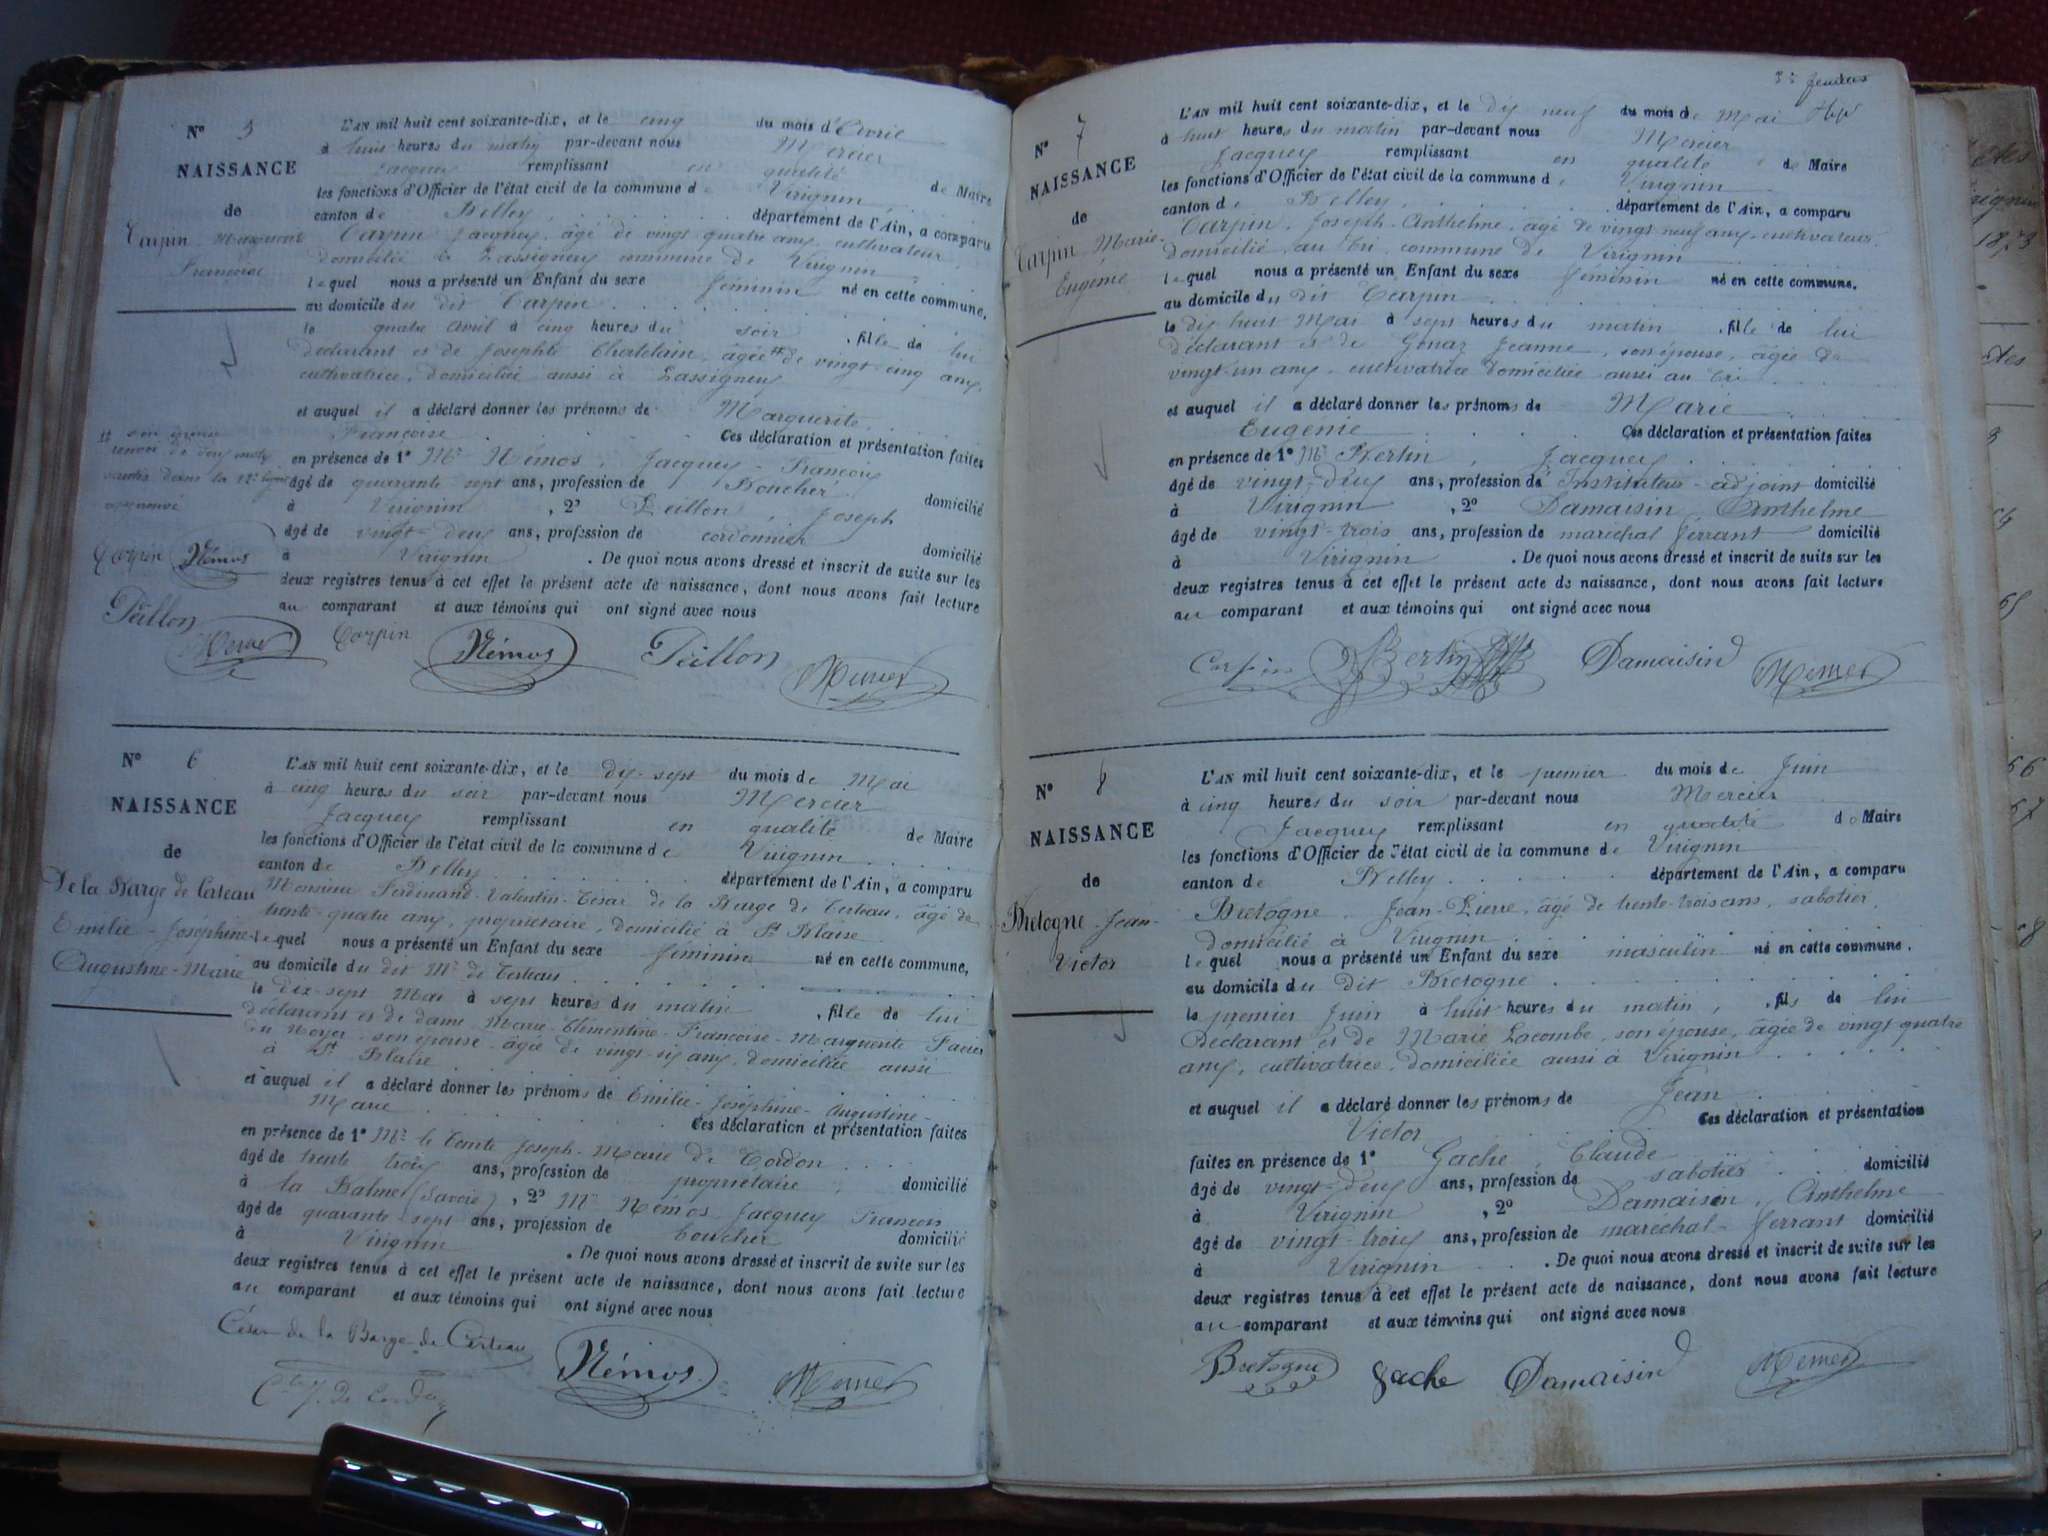 N° 5
NAISSANCE
de
Carpin Marguerite
Françoise
L'AN mil huit cent soixante-dix, et le cinq du mois d'Avril
à huit heures du matin par-devant nous Mercier
Jacques remplissant en qualité de Maire
les fonctions d'Officier de l'état civil de la commune de Virignin
canton de Belley département de l'Ain, a comparu
Carpin Jacques, âgé de vingt quatre ans, cultivateur,
domicilié à Lassignieu commune de Virignin
lequel nous a présenté un Enfant du sexe féminin né en cette commune,
au domicile du dit Carpin
le quatre Avril à cinq heures du soir, fille de lui
déclarant et de Josephte Chatelain, âgée # de vingt-cinq ans,
cultivatrice, domiciliée aussi à Lassignieu
et auquel il a déclaré donner les prénoms de Marguerite
Françoise Ces déclaration et présentation faites
en présence de 1° Mr Némos, Jacques-François
âgé de quarante-sept ans, profession de Boucher domicilié
à Virignin, 2° Peillon, Joseph
âgé de vingt-deux ans, profession de cordonnier domicilié
à Virignin. De quoi nous avons dressé et inscrit de suite sur les
deux registres tenus à cet effet le présent acte de naissance, dont nous avons fait lecture
au comparant et aux témoins qui ont signé avec nous
# son épouse
renvoi de deux mots
sautés dans la 12e ligne
approuvé
Carpin Némos
Peillon
Mercier Carpin Némos Peillon Mercier
N° 6
NAISSANCE
de
De la Barge de Certeau
Emilie-Joséphine-
Augustine-Marie
L'AN mil huit cent soixante-dix, et le dix-sept du mois de Mai
à cinq heures du soir par-devant nous Mercier
Jacques remplissant en qualité de Maire
les fonctions d'Officier de l'état civil de la commune de Virignin
canton de Belley département de l'Ain, a comparu
Monsieur Ferdinand-Valentin-César de la Barge de Certeau, âgé de
trente-quatre ans, propriétaire, domicilié à St Blaise
lequel nous a présenté un Enfant du sexe féminin né en cette commune,
au domicile du dit Mr de Certeau
le dix-sept Mai à sept heures du matin, fille de lui
déclarant et de dame Marie-Clémentine-Françoise-Marguerite
du Noyer, son épouse, âgée de vingt-six ans, domiciliée aussi
à St Blaise
et auquel il a déclaré donner les prénoms de Emilie-Joséphine-Augustine-
Marie Ces déclaration et présentation faites
en présence de 1° Mr le Comte Joseph-Marie de Cordon
âgé de trente trois ans, profession de propriétaire domicilié
à la Balme (Savoie), 2° Mr Némos Jacques François
âgé de quarante-sept ans, profession de boucher domicilié
à Virignin. De quoi nous avons dressé et inscrit de suite sur les
deux registres tenus à cet effet le présent acte de naissance, dont nous avons fait lecture
au comparant et aux témoins qui ont signé avec nous
César de la Barge de Certeau Némos Mercier
Cte J. de Cordon
N° 7
NAISSANCE
de
Carpin Marie-
Eugénie
L'AN mil huit cent soixante-dix, et le dix neuf du mois de Mai
à huit heures du matin par-devant nous Mercier
Jacques remplissant en qualité de Maire
les fonctions d'Officier de l'état civil de la commune de Virignin
canton de Belley département de l'Ain, a comparu
Carpin, Joseph-Anthelme, âgé de vingt neuf ans, cultivateur,
domicilié au commune de Virignin
lequel nous a présenté un Enfant du sexe féminin né en cette commune.
au domicile du dit Carpin
le dix huit Mai à sept heures du matin, fille de lui
déclarant et de Jeanne, son épouse, âgée de
vingt-un ans, cultivatrice domiciliée aussi au
et auquel il a déclaré donner les prénoms de Marie
Eugénie Ces déclaration et présentation faites
en présence de 1° Mr Bertin, Jacques
âgé de vingt-deux ans, profession de Instituteur-adjoint domicilié
à Virignin, 2° Damaisin Anthelme
âgé de vingt-trois ans, profession de maréchal ferrant domicilié
à Virignin. De quoi nous avons dressé et inscrit de suite sur les
deux registres tenus à cet effet le présent acte de naissance, dont nous avons fait lecture
au comparant et aux témoins qui ont signé avec nous
Carpin Bertin Damaisin Mercier
N° 8
NAISSANCE
de
Bretogne Jean-
Victor
L'AN mil huit cent soixante-dix, et le premier du mois de Juin
à cinq heures du soir par-devant nous Mercier
Jacques remplissant en qualité de Maire
les fonctions d'Officier de l'état civil de la commune de Virignin
canton de Belley département de l'Ain, a comparu
Bretogne, Jean-Pierre, âgé de trente-trois ans, sabotier,
domicilié à Virignin
lequel nous a présenté un Enfant du sexe masculin né en cette commune.
au domicile du dit Bretogne
le premier Juin à huit heures du matin, fils de lui
déclarant et de Marie Lacombe, son épouse, âgée de vingt quatre
ans, cultivatrice, domiciliée aussi à Virignin
et auquel il a déclaré donner les prénoms de Jean
Victor Ces déclaration et présentation
faites en présence de 1° Gache Claude
âgé de vingt-deux ans, profession de sabotier domicilié
à Virignin, 2° Damaisin, Anthelme
âgé de vingt-trois ans, profession de maréchal-ferrant domicilié
à Virignin. De quoi nous avons dressé et inscrit de suite sur les
deux registres tenus à cet effet le présent acte de naissance, dont nous avons fait lecture
au comparant et aux témoins qui ont signé avec nous
Bretogne Gache Damaisin Mercier